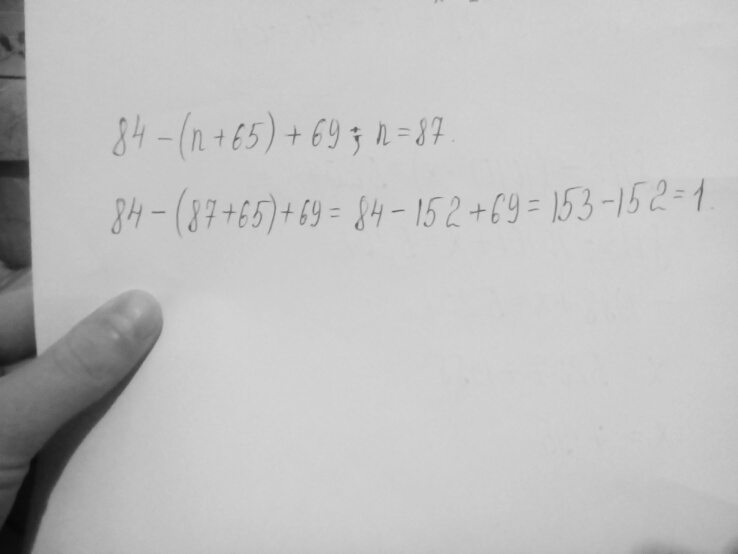 84 - (n + 65) + 69 ; n = 87.
84 - (87 + 65) + 69 = 84 - 152 + 69 = 153 - 152 = 1.